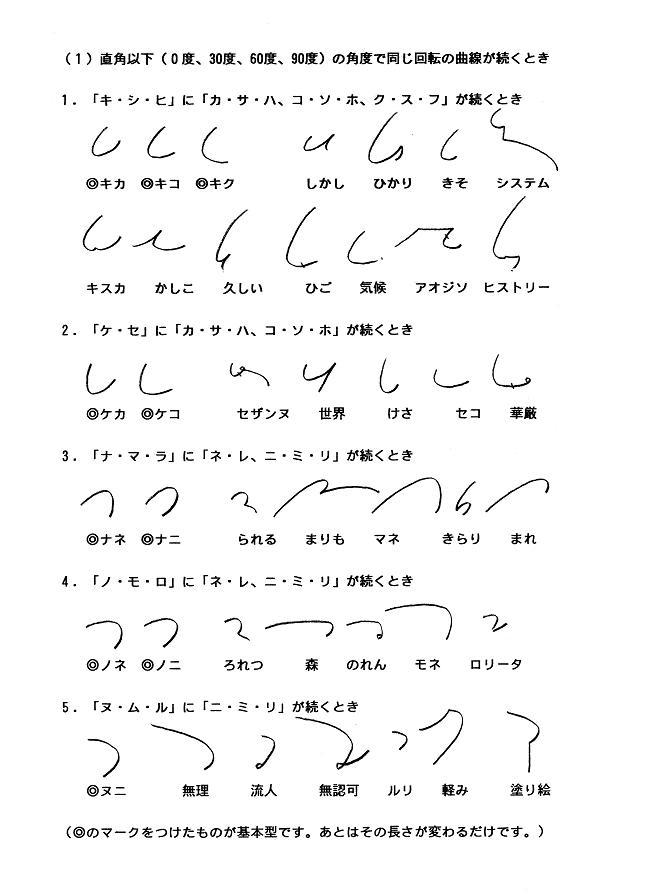 (1)直角以下(0度、30度、60度、90度)の角度で同じ回転の曲線が続くとき
1.「キ・シ・ヒ」に「カ・サ・ハ、コ・ソ・ホ、ク・ス・フ」が続くとき
◎キカ ◎キコ ◎キク しかし ひかり きそ システム
キスカ かしこ 久しい ひご 気候 アオジソ ヒストリー
2.「ケ・セ」に「カ・サ・ハ、コ・ソ・ホ」が続くとき
◎ケカ ◎ケコ セザンヌ 世界 けさ セコ 華厳
3.「ナ・マ・ラ」に「ネ・レ、ニ・ミ・リ」が続くとき
◎ナネ ◎ナニ られる まりも マネ きらり まれ
4.「ノ・モ・ロ」に「ネ・レ、ニ・ミ・リ」が続くとき
◎ノネ ◎ノニ ろれつ 森 のれん モネ ロリータ
5.「ヌ・ム・ル」に「ニ・ミ・リ」が続くとき
◎ヌニ 無理 流人 無認可 ルリ 軽み 塗り絵
(◎のマークをつけたものが基本型です。あとはその長さが変わるだけです。)